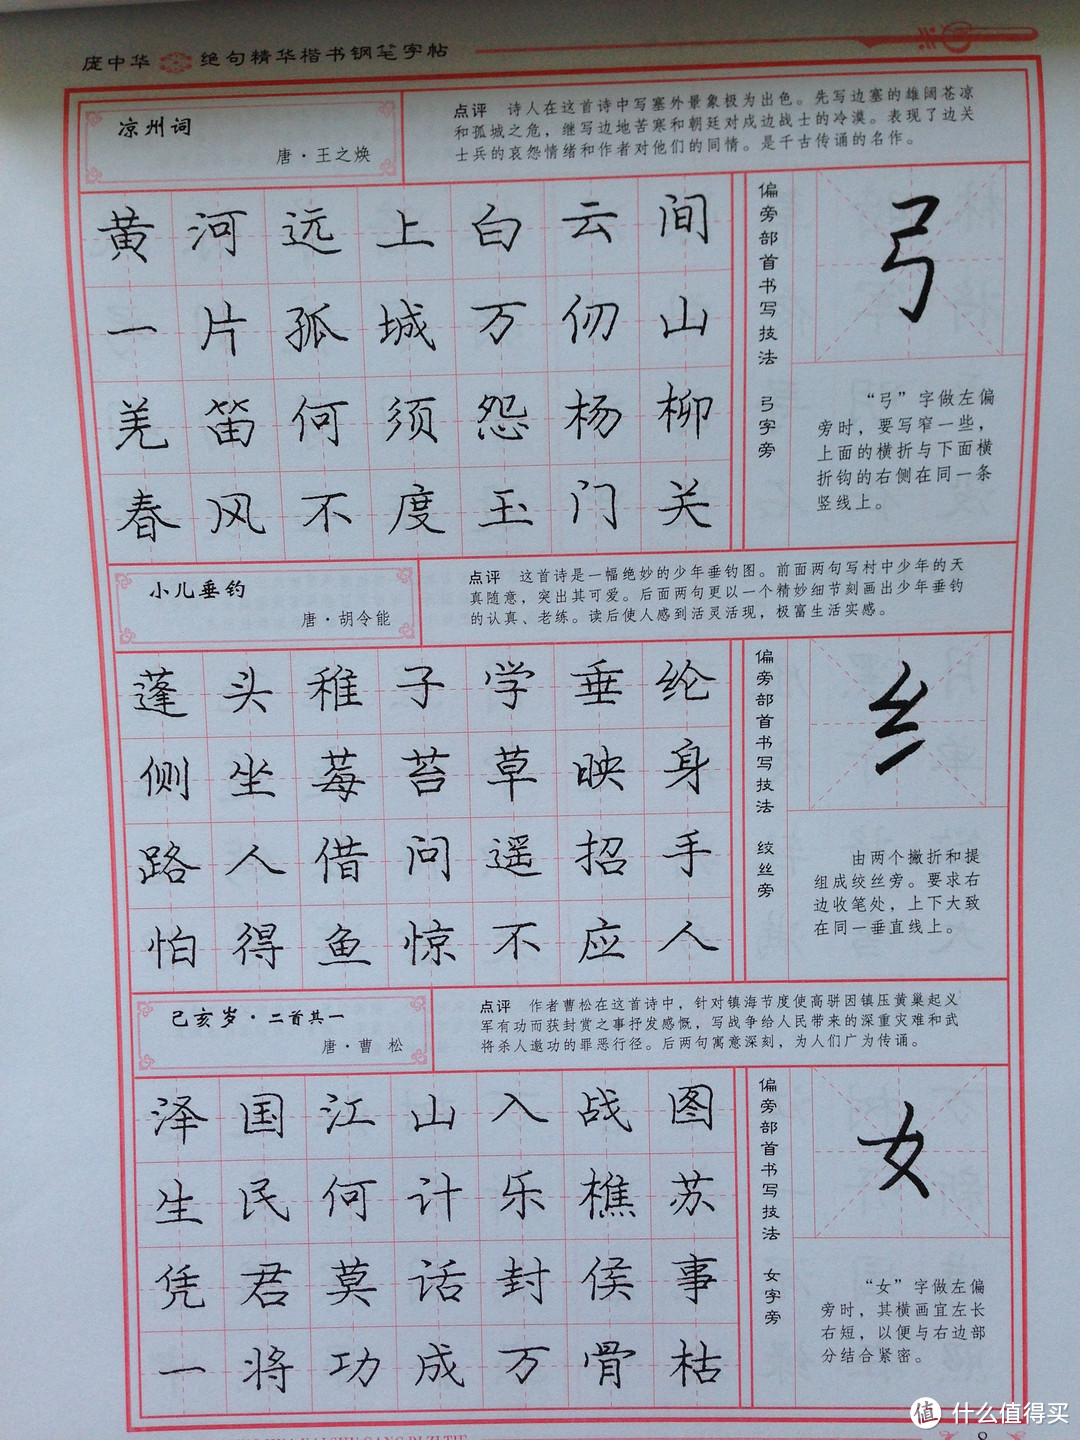 庞中华 绝句精华楷书钢笔字帖
凉州词
唐·王之焕
点评 诗人在这首诗中写塞外景象极为出色。先写边塞的雄阔苍凉
和孤城之危，继写边地苦寒和朝廷对戍边战士的冷漠。表现了边关
士兵的哀怨情绪和作者对他们的同情。是千古传诵的名作。
黄河远上白云间
一片孤城万仞山
羌笛何须怨杨柳
春风不度玉门关
偏旁部首书写技法 弓字旁
弓
“弓”字做左偏
旁时，要写窄一些，
上面的横折与下面横
折钩的右侧在同一条
竖线上。
小儿垂钓
唐·胡令能
点评 这首诗是一幅绝妙的少年垂钓图。前面两句写村中少年的天
真随意，突出其可爱。后面两句更以一个精妙细节刻画出少年垂钓
的认真、老练。读后使人感到活灵活现，极富生活实感。
蓬头稚子学垂纶
侧坐莓苔草映身
路人借问遥招手
怕得鱼惊不应人
偏旁部首书写技法 绞丝旁
纟
由两个撇折和提
组成绞丝旁。要求右
边收笔处，上下大致
在同一垂直线上。
己亥岁·二首其一
唐·曹 松
点评 作者曹松在这首诗中，针对镇海节度使高骈因镇压黄巢起义
军有功而获封赏之事抒发感慨，写战争给人民带来的深重灾难和武
将杀人邀功的罪恶行径。后两句寓意深刻，为人们广为传诵。
泽国江山入战图
生民何计乐樵苏
凭君莫话封侯事
一将功成万骨枯
偏旁部首书写技法 女字旁
女
“女”字做左偏
旁时，其横画宜左长
右短，以便与右边部
分结合紧密。
8
值 什么值得买